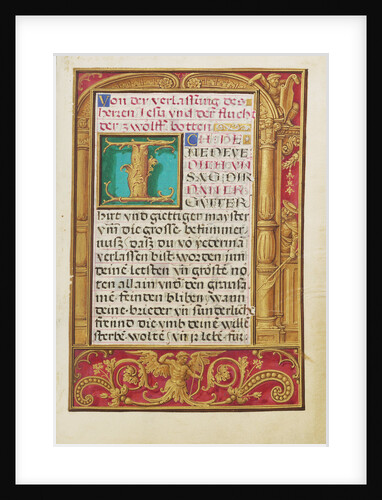 Von der verlassung des
herzen Jesu vnd der flucht
der zwolff botten
ICH DE
NEDEYE
DICH VN
SAG DIR
DANCK
GVTTER
hirt vnd guettiger mayster
vm die grosse bekummer
nusz dasz du vō yederma
verlassen bist worden jnn
deine letsten vn̄ grostē no
ten allain vnd den grausa
me feinden bliben wann
deine brieder vn̄ sunderliche
freind die vmb deine wille
sterbē woltē